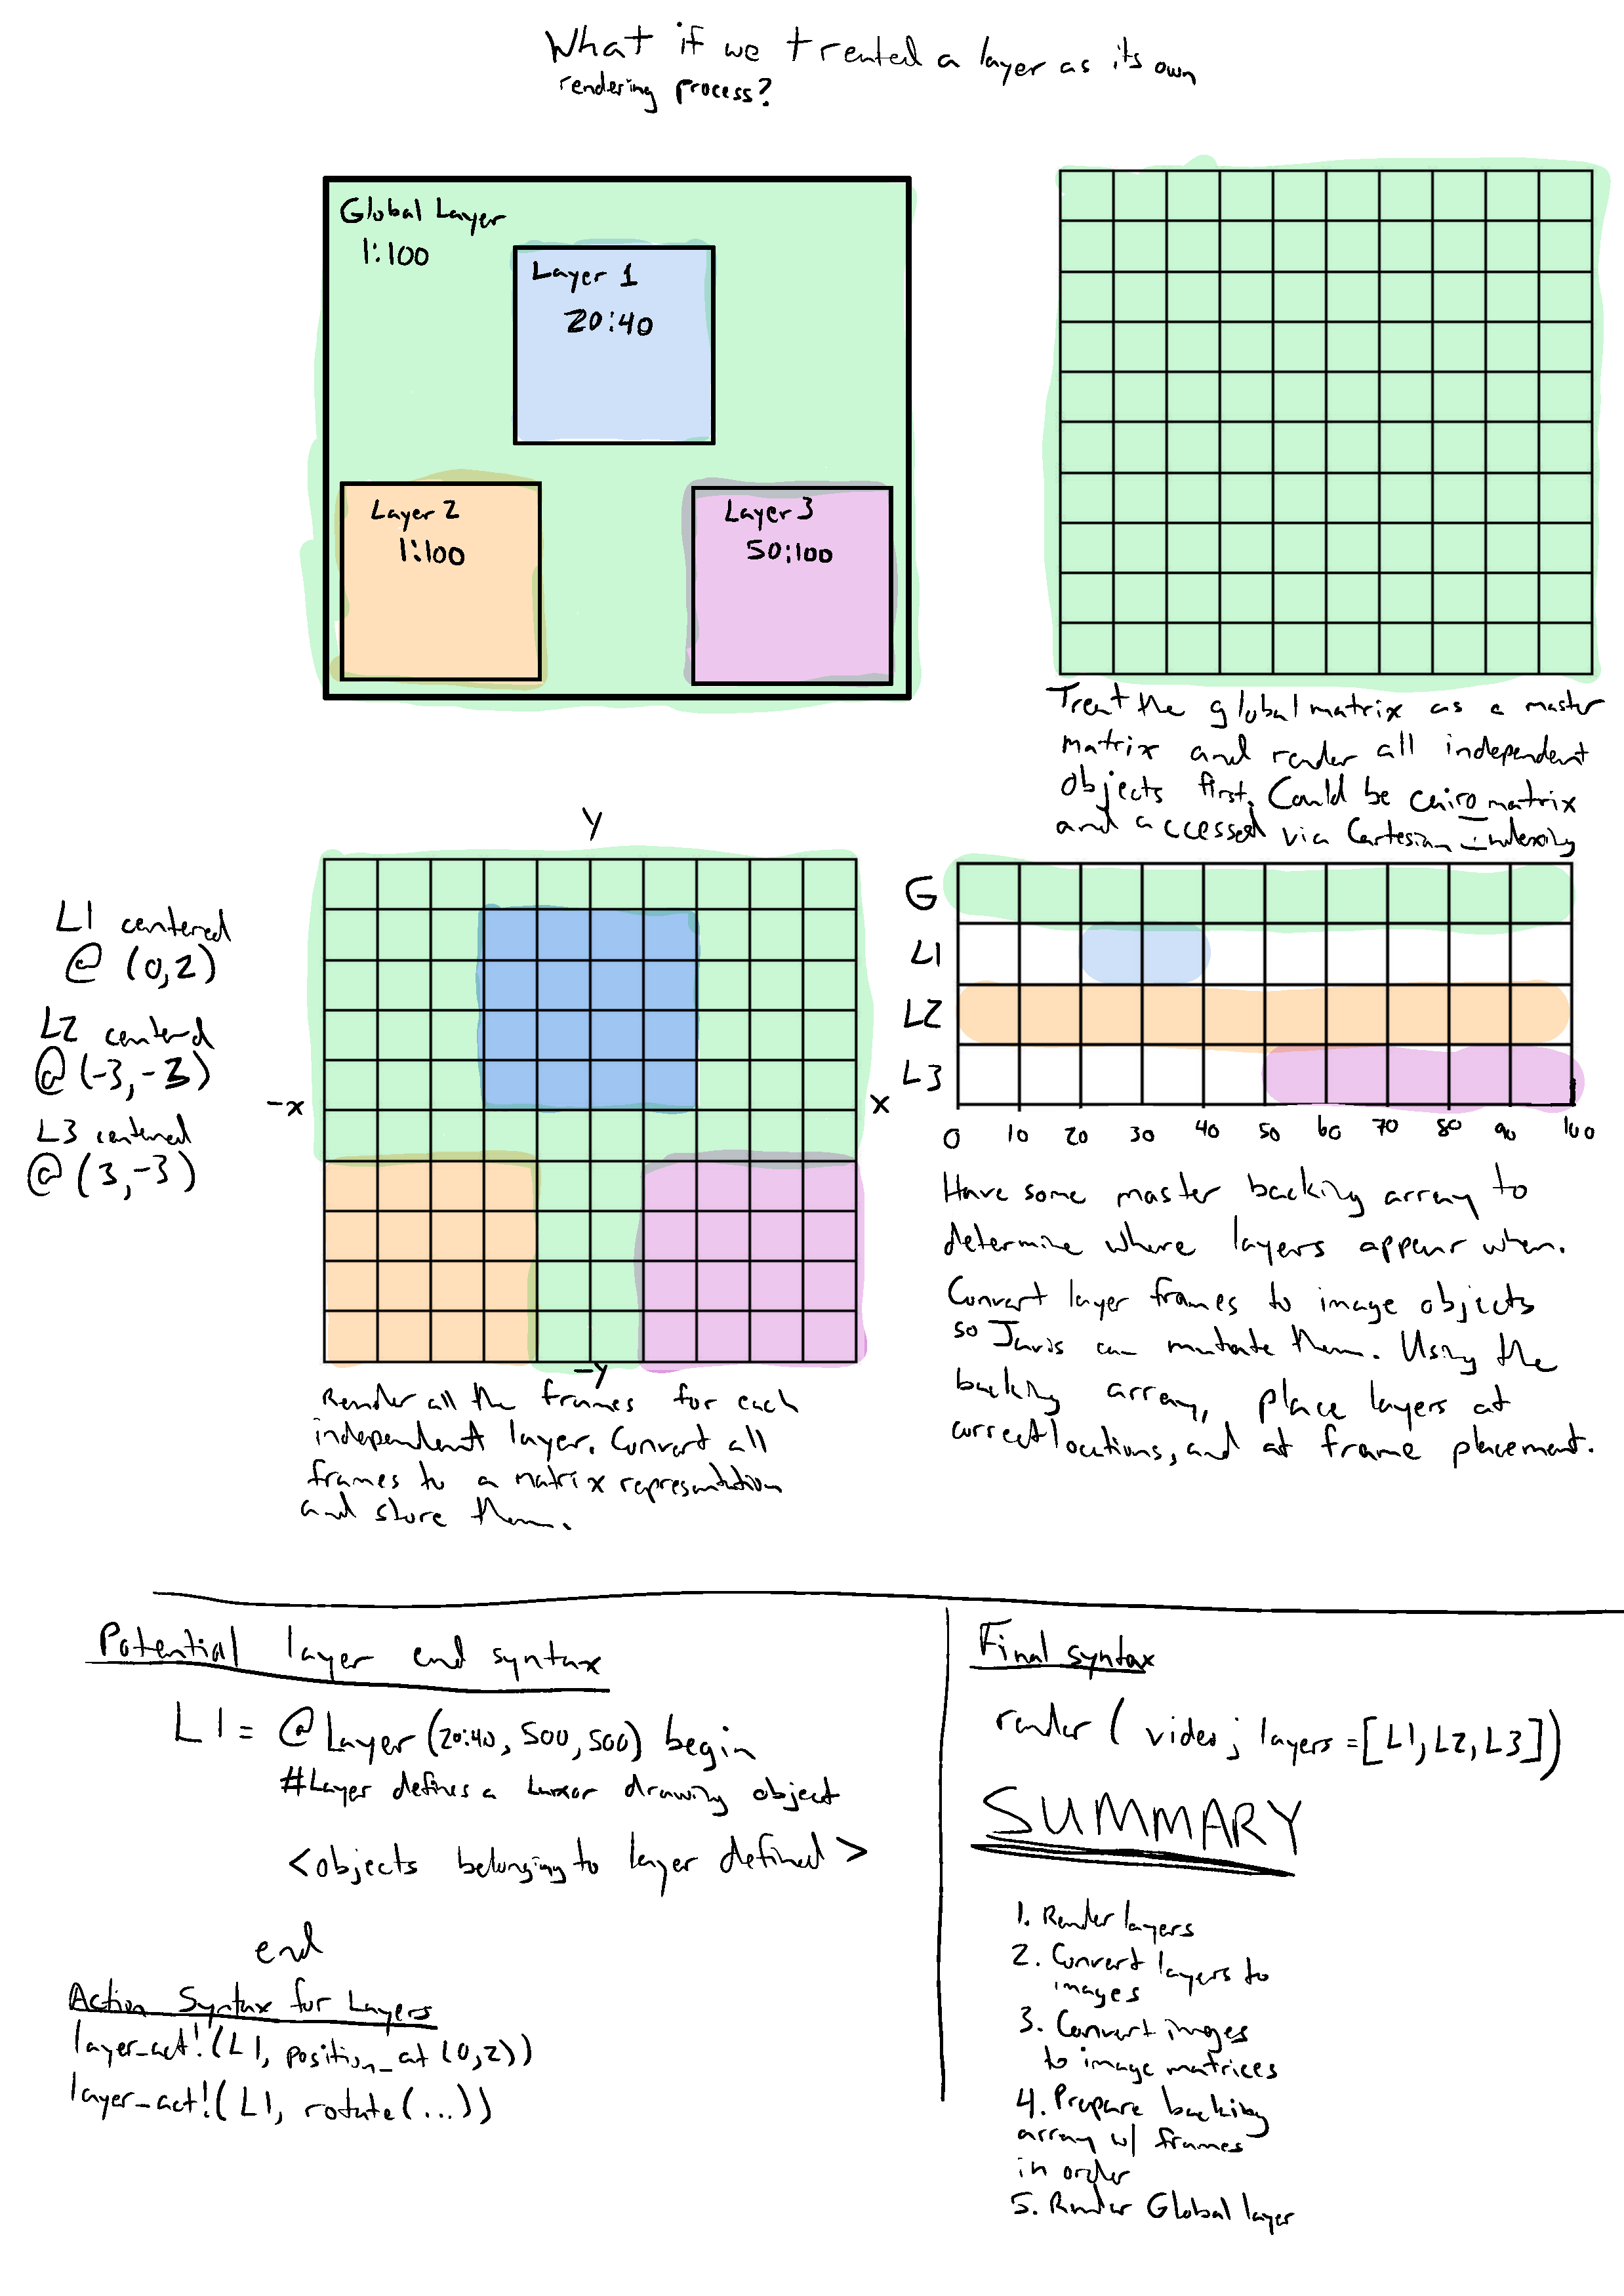 What if we treated a layer as its own
rendering process?
Global Layer
1:100
Layer 1
20:40
Layer 2
1:100
Layer 3
50:100
Treat the global matrix as a master
matrix and render all independent
objects first. Could be cairo matrix
and accessed via Cartesian Indexing
L1 centered
@ (0,2)
L2 centered
@ (-3,-3)
L3 centered
@ (3,-3)
Y
-x
x
-Y
Render all the frames for each
independent layer. Convert all
frames to a matrix representation
and store them.
G
L1
L2
L3
0 10 20 30 40 50 60 70 80 90 100
Have some master backing array to
determine where layers appear when.
Convert layer frames to image objects
so Javis can mutate them. Using the
backing array, place layers at
correct locations, and at frame placement.
Potential layer end syntax
L1 = @Layer (20:40, 500, 500) begin
#Layer defines a Luxor drawing object
<objects belonging to layer defined>
end
Action Syntax for Layers
layer_act!(L1, position_at (0,2))
layer_act!(L1, rotate(...))
Final syntax
render ( video; layers = [L1, L2, L3])
SUMMARY
1. Render layers
2. Convert layers to
images
3. Convert images
to image matrices
4. Prepare backing
array w/ frames
in order
5. Render Global layer